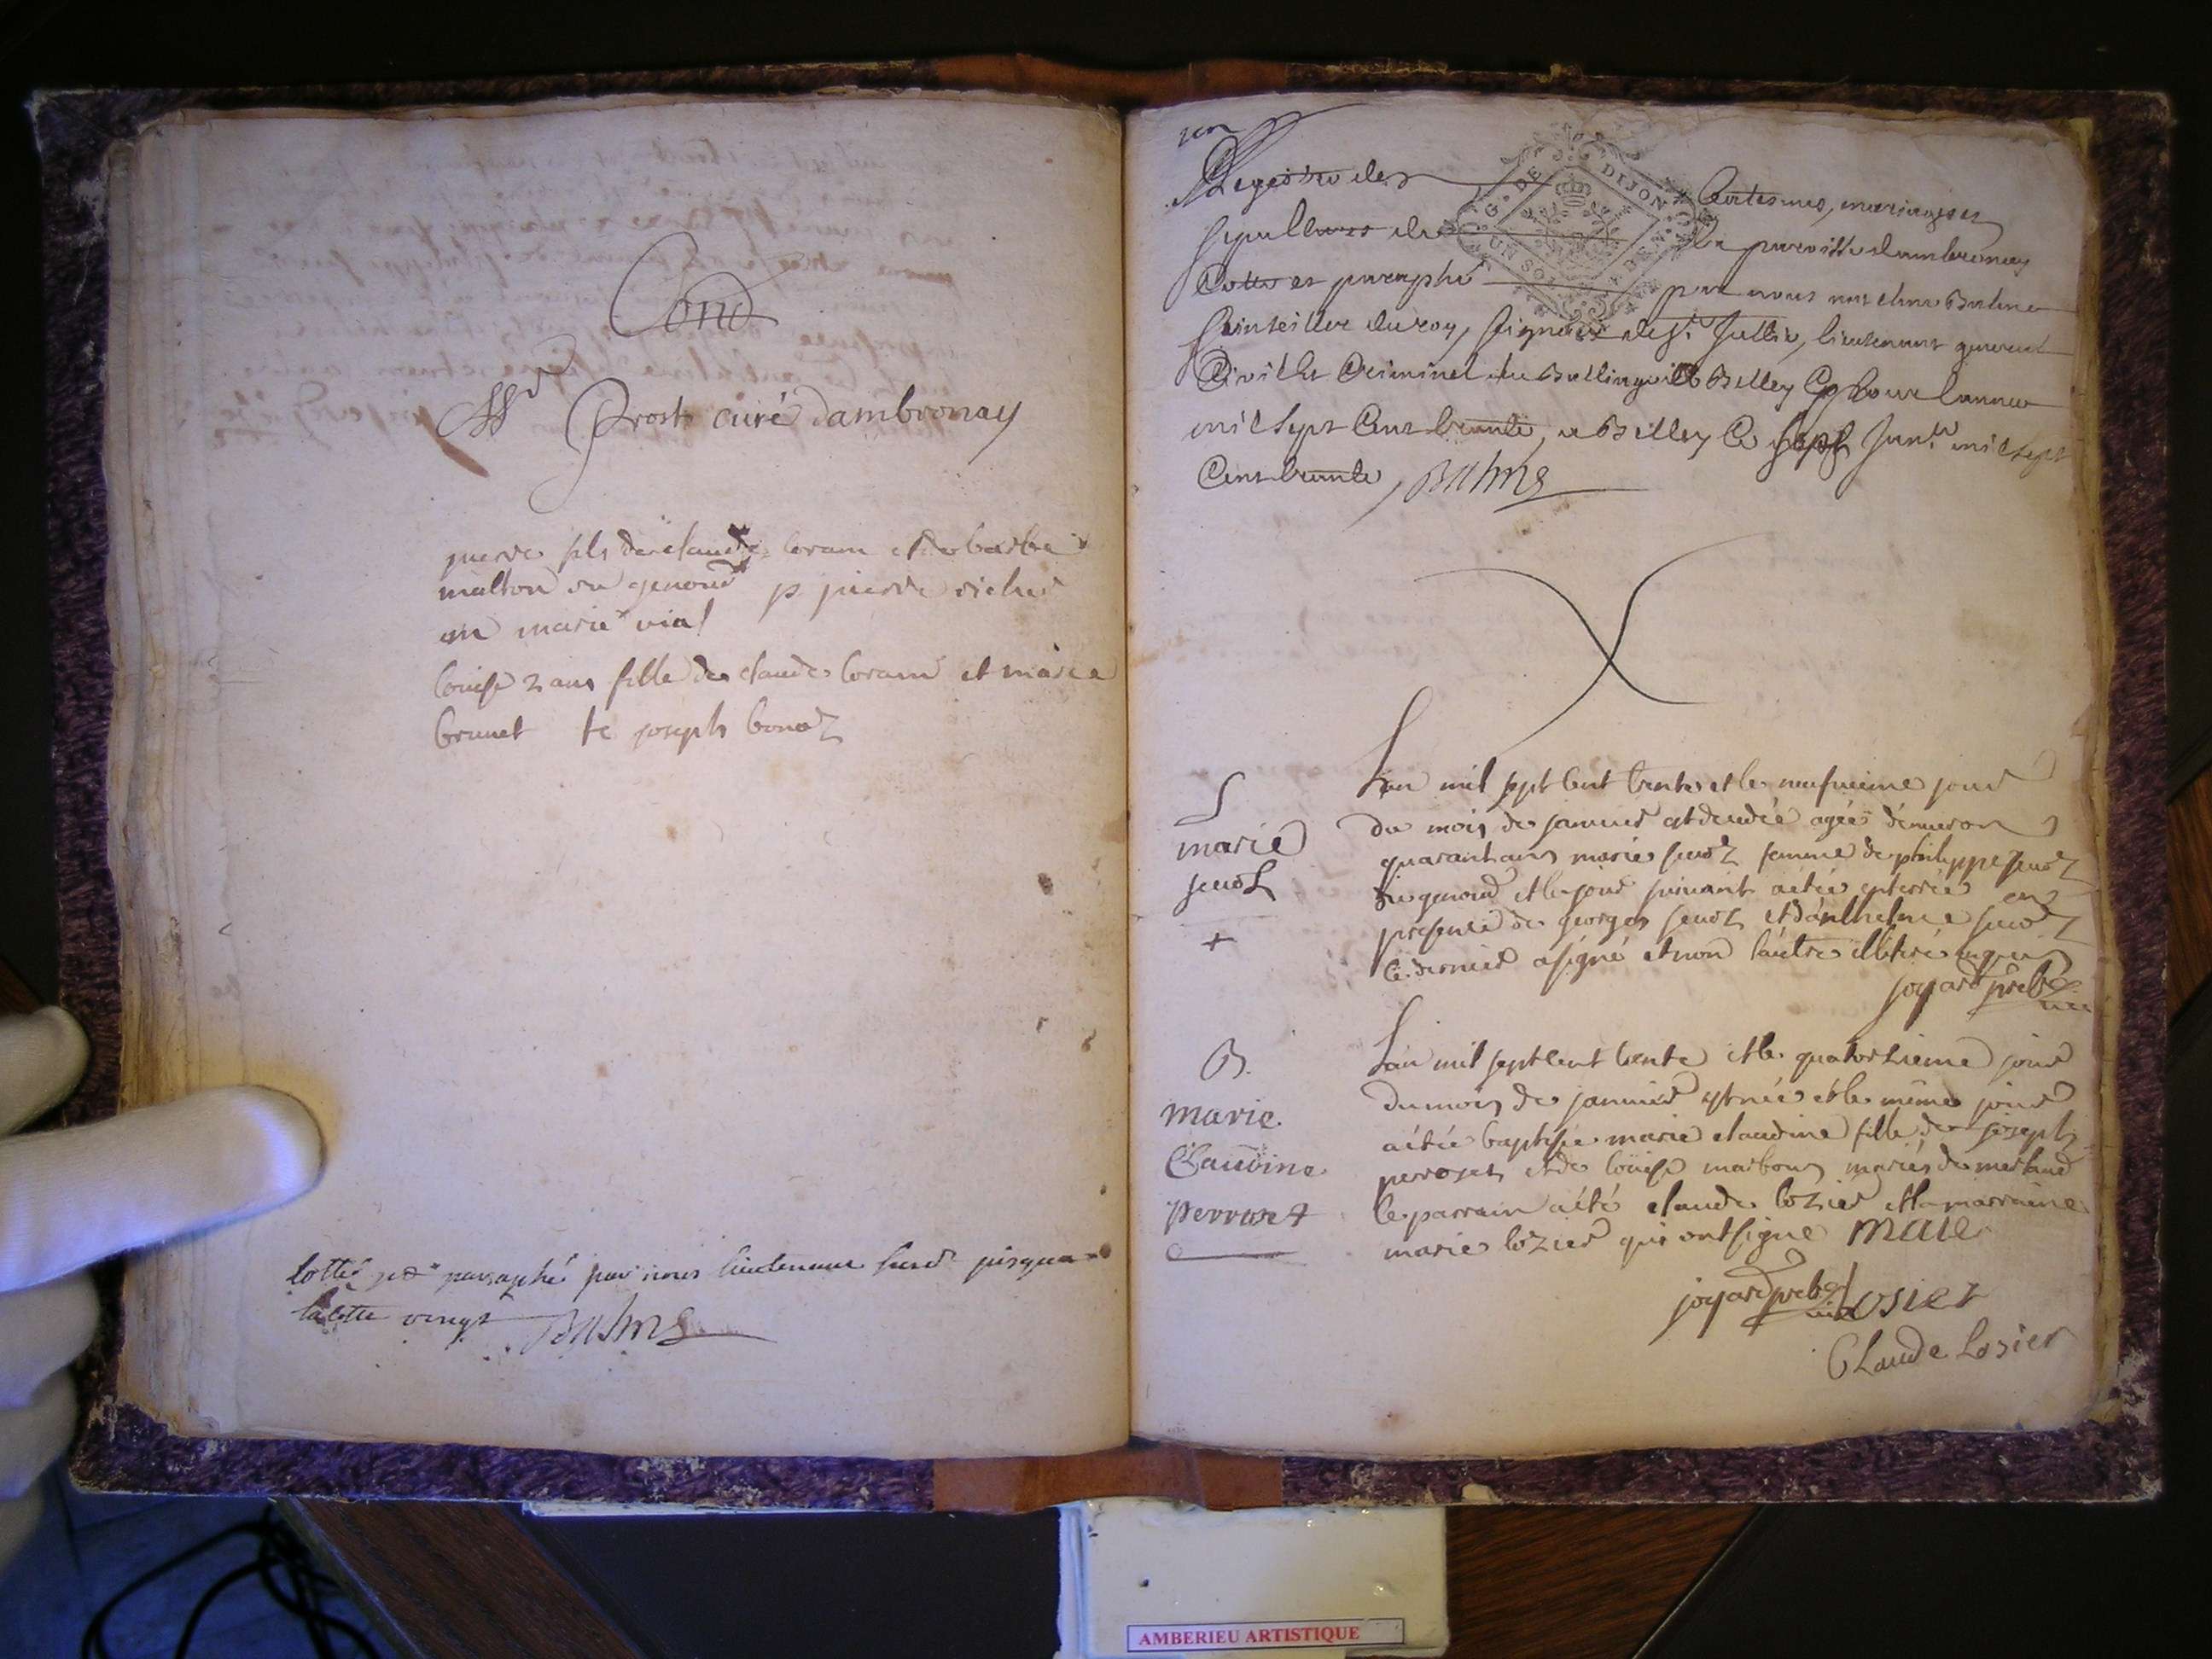 Cond
Mr Prost curé dambronay
pierre fils de claude loram et de barbe
malton du genoud p pierre
m marie vial
louise 2 ans fille de claude loram et marie
brunet te joseph bonod
Cotté et paraphé par nous lieutenant jusqua
la cotte vingt Balme
Registre des Batesmes, mariages et
sepultures de la paroisse dambronay
Cotté et paraphé par nous Balme
Conseiller du roy, seigneur de St Jullin, lieutenant general
Civil et Criminel au Balliage de Belley pour lannée
mil sept Cent trente, a Belley Ce sept Janer mil sept
Cent trente, Balme
G. DE DIJON
UN SOL
S
marie
juuoz
+
Lan mil sept cent trente et le neufvieme jour
du mois de janvier est decedée agée denviron
quarant ans marie juuoz femme de philippe juuoz
du genoud et le jour suivant a étée enterrée en
presence de georges juuoz et danthelme juuoz
le dernier a signé et non lautre illiteré enquis
joyard prebre
vic
B.
marie
Claudine
perroset
Lan mil sept cent trente et le quatorzieme jour
du mois de janvier est née et le même jour
a étée baptisée marie claudine fille de joseph
perroset et de louise marbou mariés de merland
le parrain a été claude lozier et la marraine
marie lozier qui ont signe marie
joyard prebre vic Losier
Claude Losier
AMBERIEU ARTISTIQUE